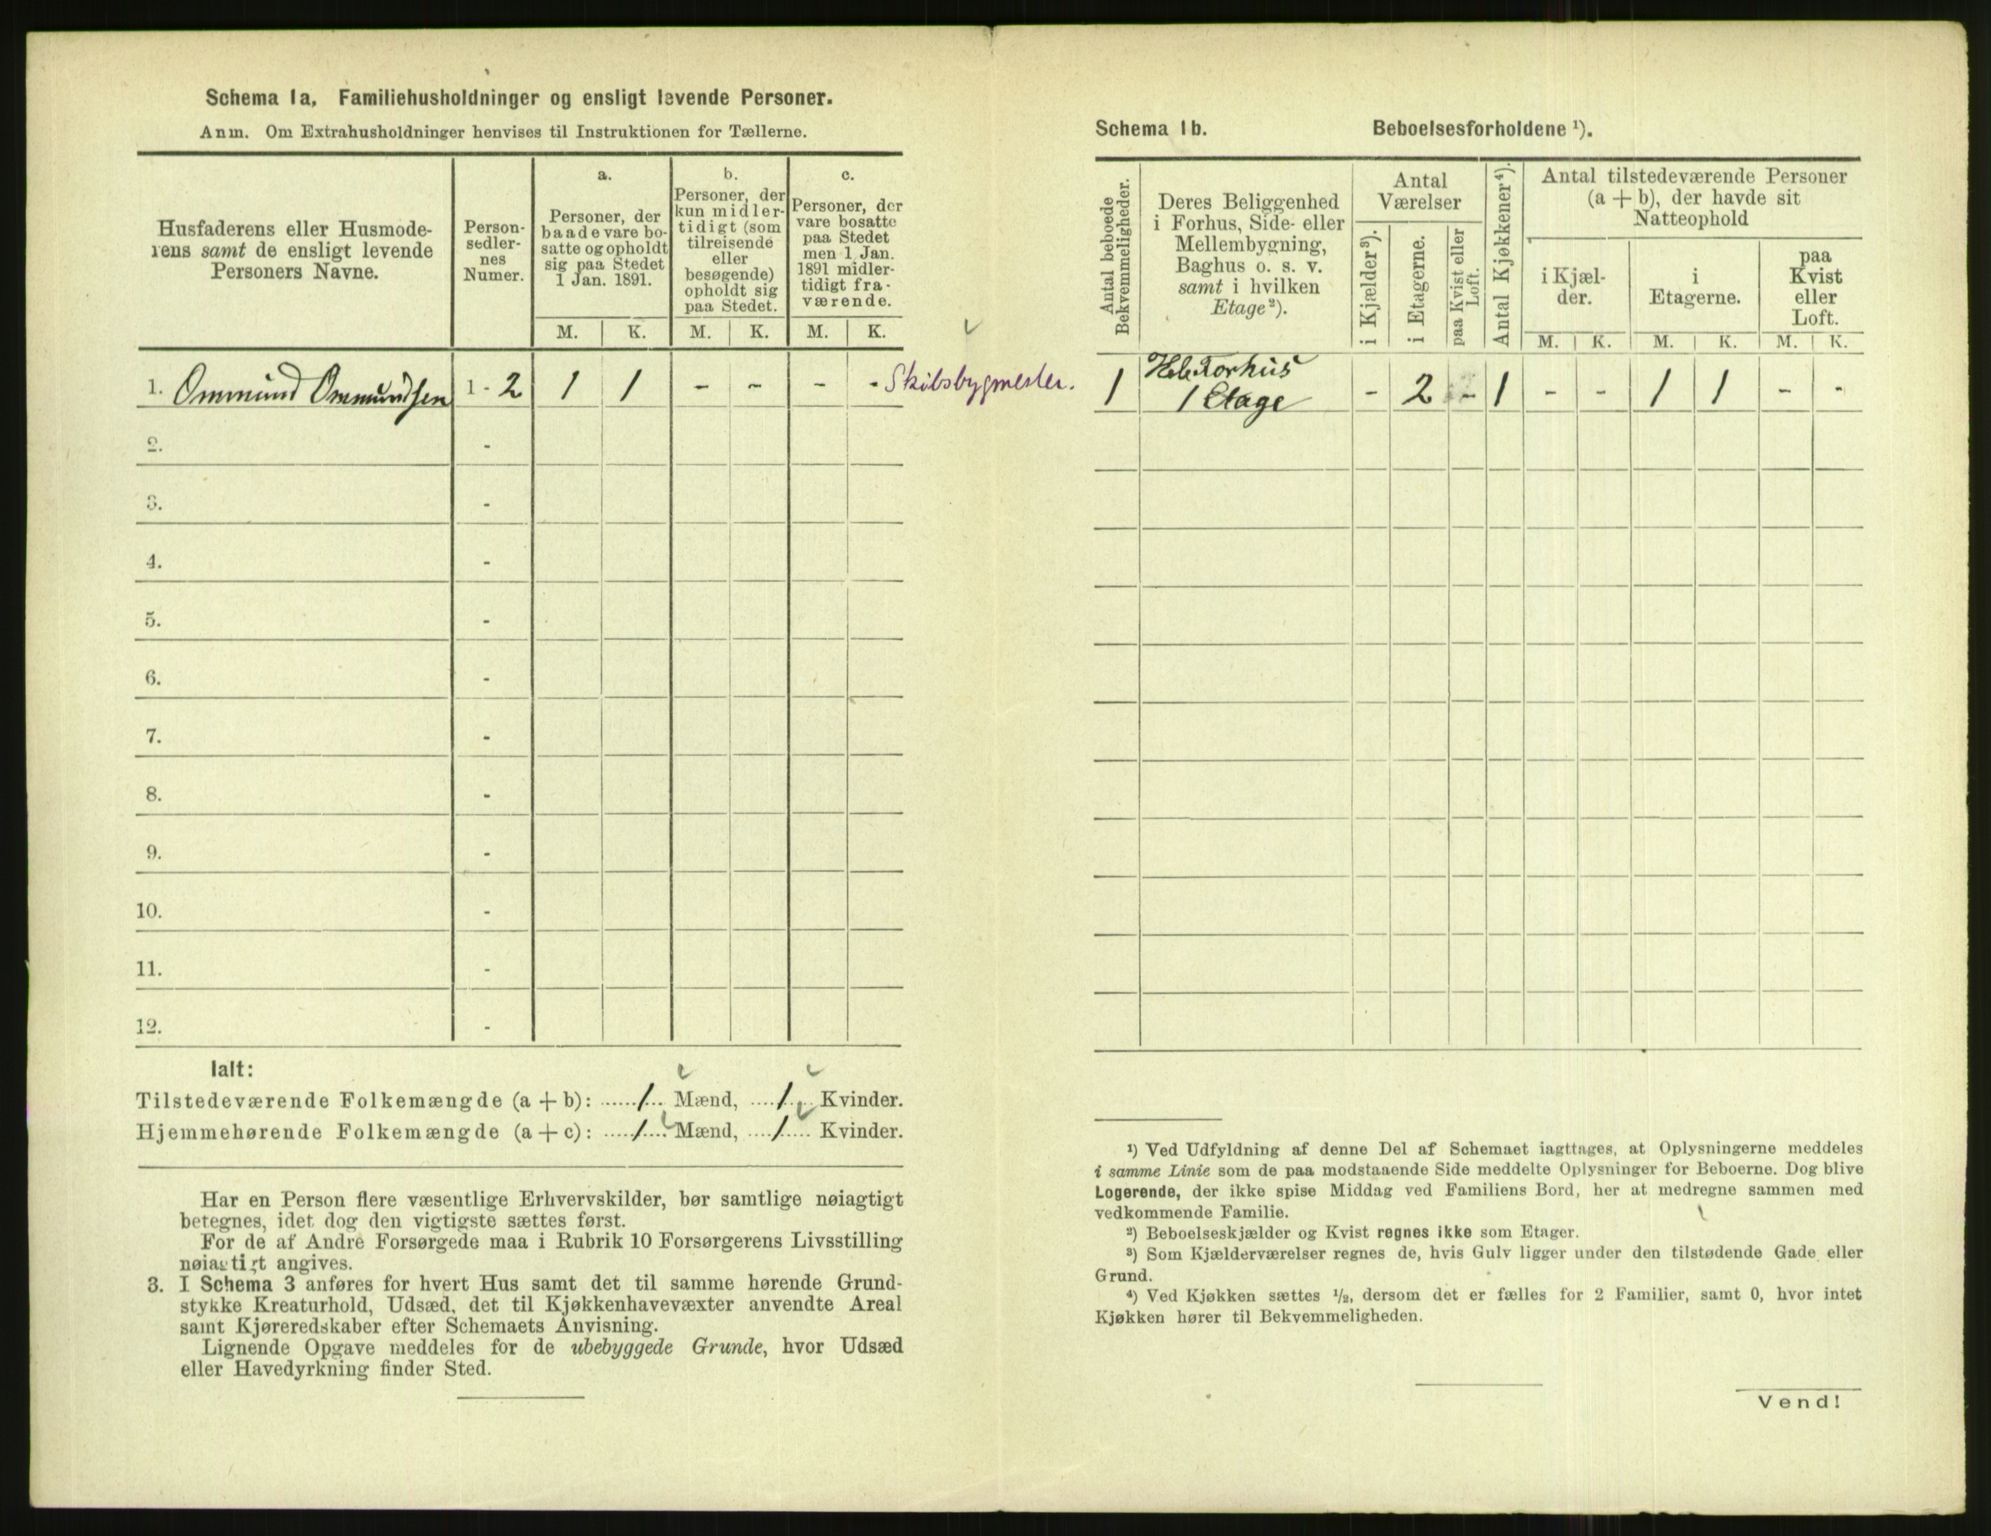 Schema 1a, Familiehusholdninger og ensligt levende Personer.
Anm. Om Extrahusholdninger henvises til Instruktionen for Tællerne.
Husfaderens eller Husmode-
rens samt de ensligt levende
Personers Navne.
Person-
sedler-
nes
Numer.
a.
Personer, der
baade vare bo-
satte og opholdt
sig paa Stedet
1 Jan. 1891.
b.
Personer, der
kun midler-
tidigt (som
tilreisende
eller
besøgende)
opholdt sig
paa Stedet.
c.
Personer, der
vare bosatte
paa Stedet
men 1 Jan.
1891 midler-
tidigt fra-
værende.
M. K. M. K. M. K.
1. Ommund Ommundsen 1 - 2 1 1 - - - - Skibsbygmester.
2. -
3. -
4. -
5. -
6. -
7. -
8. -
9. -
10. -
11. -
12. -
Ialt:
Tilstedeværende Folkemængde (a + b): ......1... Mænd, ....1.... Kvinder.
Hjemmehørende Folkemængde (a + c): .....1.... Mænd, ....1.... Kvinder.
Har en Person flere væsentlige Erhvervskilder, bør samtlige nøiagtigt
betegnes, idet dog den vigtigste sættes først.
For de af Andre Forsørgede maa i Rubrik 10 Forsørgerens Livsstilling
nøiagtigt angives.
3. I Schema 3 anføres for hvert Hus samt det til samme hørende Grund-
stykke Kreaturhold, Udsæd, det til Kjøkkenhavevæxter anvendte Areal
samt Kjøreredskaber efter Schemaets Anvisning.
Lignende Opgave meddeles for de ubebyggede Grunde, hvor Udsæd
eller Havedyrkning finder Sted.
Schema 1b. Beboelsesforholdene ¹).
Antal beboede
Bekvemmeligheder.
Deres Beliggenhed
i Forhus, Side- eller
Mellembygning,
Baghus o. s. v.
samt i hvilken
Etage²).
Antal
Værelser
i Kjælder³).
i Etagerne.
paa Kvist eller
Loft.
Antal Kjøkkener⁴).
Antal tilstedeværende Personer
(a + b), der havde sit
Natteophold
i Kjæl-
der.
i
Etagerne.
paa
Kvist
eller
Loft.
M. K. M. K. M. K.
1 Forhus - 2 - 1 - - 1 1 - -
1 Etage
¹) Ved Udfyldning af denne Del af Schemaet iagttages, at Oplysningerne meddeles
i samme Linie som de paa modstaaende Side meddelte Oplysninger for Beboerne. Dog blive
Logerende, der ikke spise Middag ved Familiens Bord, her at medregne sammen med
vedkommende Familie.
²) Beboelseskjælder og Kvist regnes ikke som Etager.
³) Som Kjælderværelser regnes de, hvis Gulv ligger under den tilstødende Gade eller
Grund.
⁴) Ved Kjøkken sættes ½, dersom det er fælles for 2 Familier, samt 0, hvor intet
Kjøkken hører til Bekvemmeligheden.
Vend!